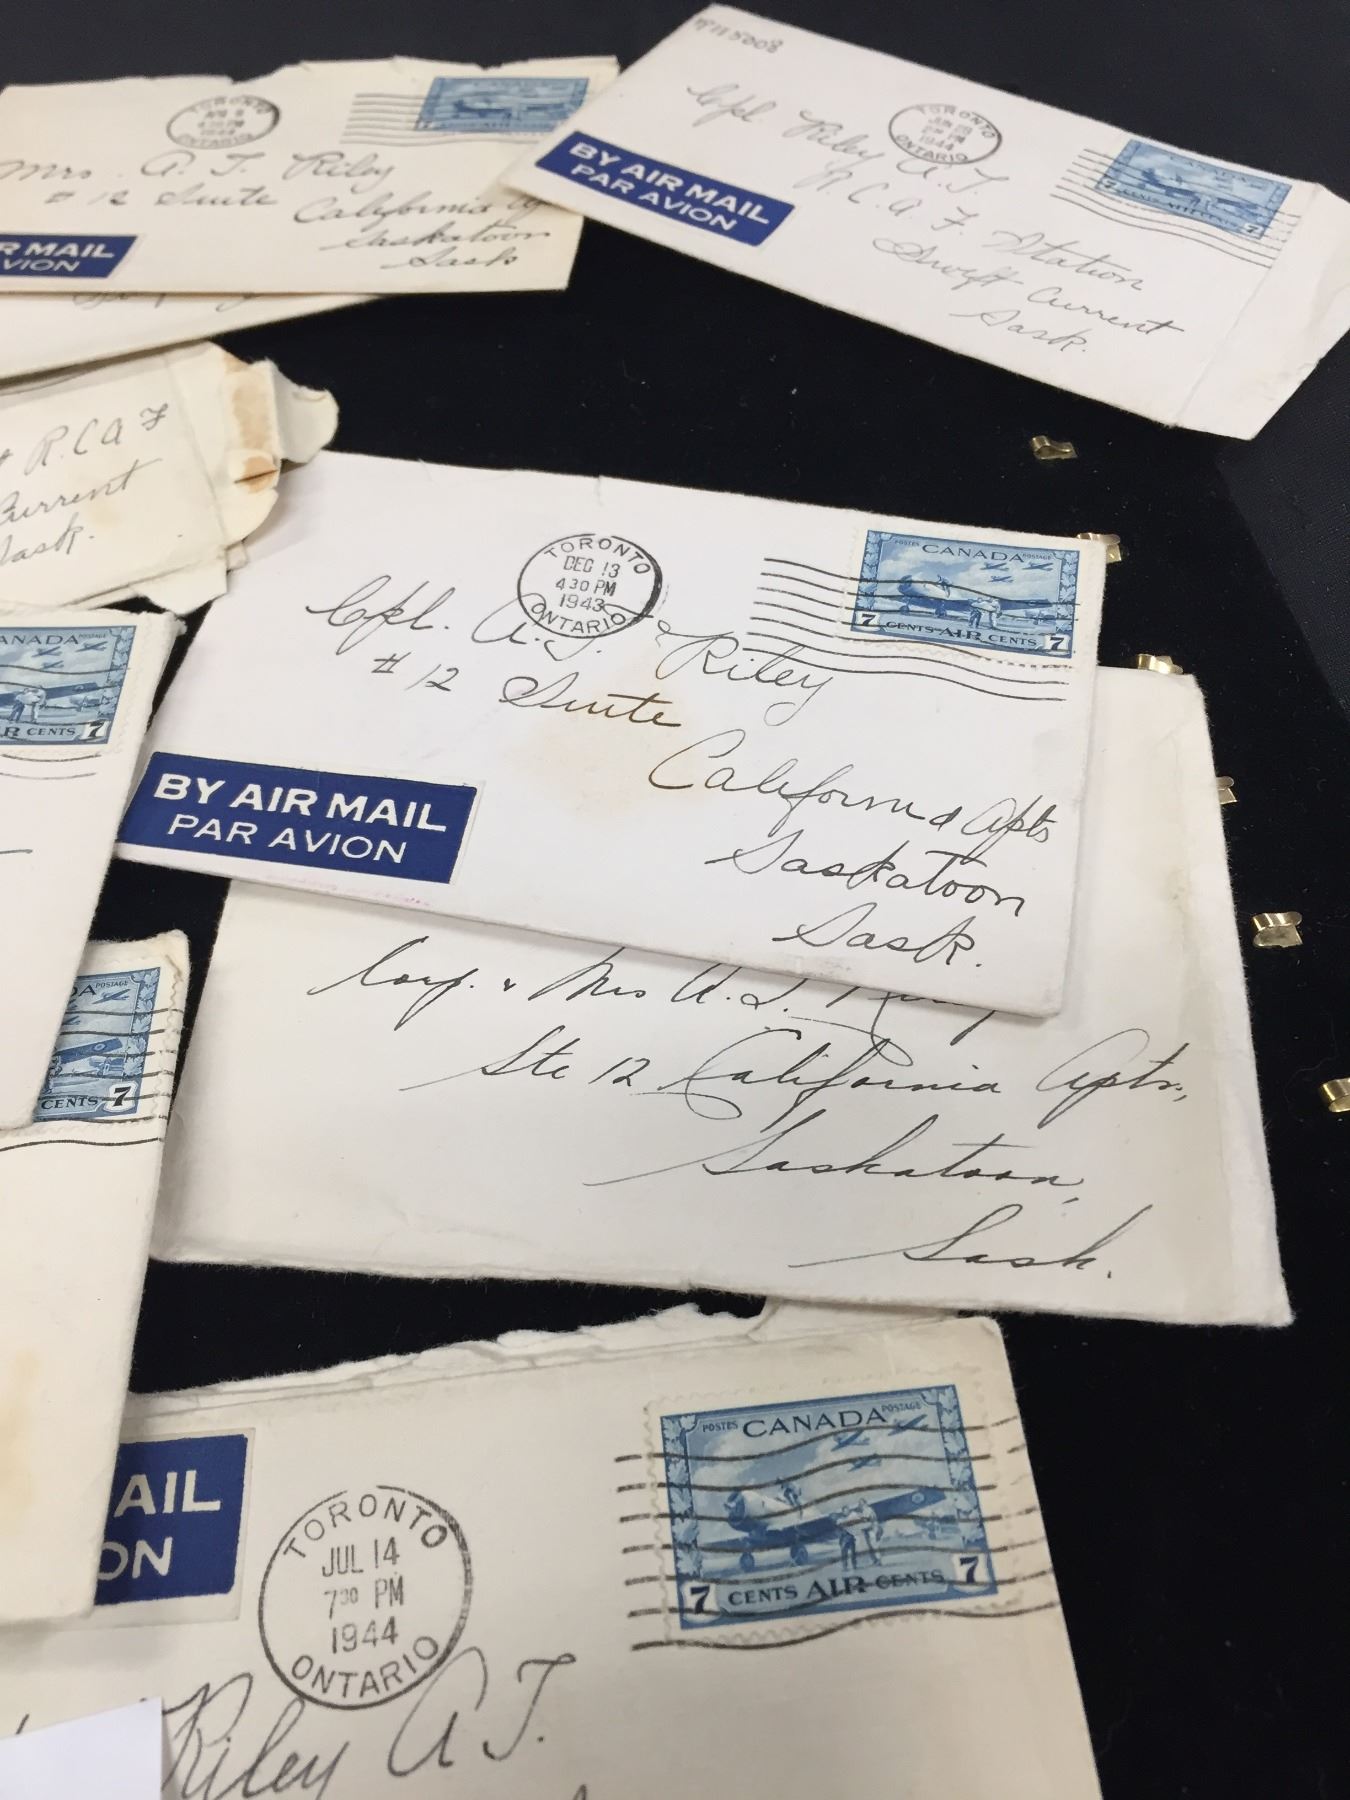 TORONTO
4 30 PM
1944
ONTARIO
Mrs. A. T. Riley
# 12 Suite
California
Saskatoon
Sask
R MAIL
VION
TORONTO
1944
ONTARIO
CANADA
7 CENTS AIR 7
Cpl. Riley A. T.
R. C. A. F. Station
Swift Current
Sask.
BY AIR MAIL
PAR AVION
R.C.A.F
Current
Sask.
TORONTO
DEC 13
4 30 PM
1943
ONTARIO
POSTES CANADA POSTAGE
7 CENTS AIR CENTS 7
Cpl. A. T. Riley
# 12 Suite
California Apts
Saskatoon
Sask.
BY AIR MAIL
PAR AVION
ANADA POSTAGE
R CENTS 7
Corp. & Mrs A. T.
Ste 12 California Apts.,
Saskatoon,
Sask.
DA POSTAGE
CENTS 7
AIL
ON
TORONTO
JUL 14
7 30 PM
1944
ONTARIO
POSTES CANADA POSTAGE
7 CENTS AIR CENTS 7
Riley A T.